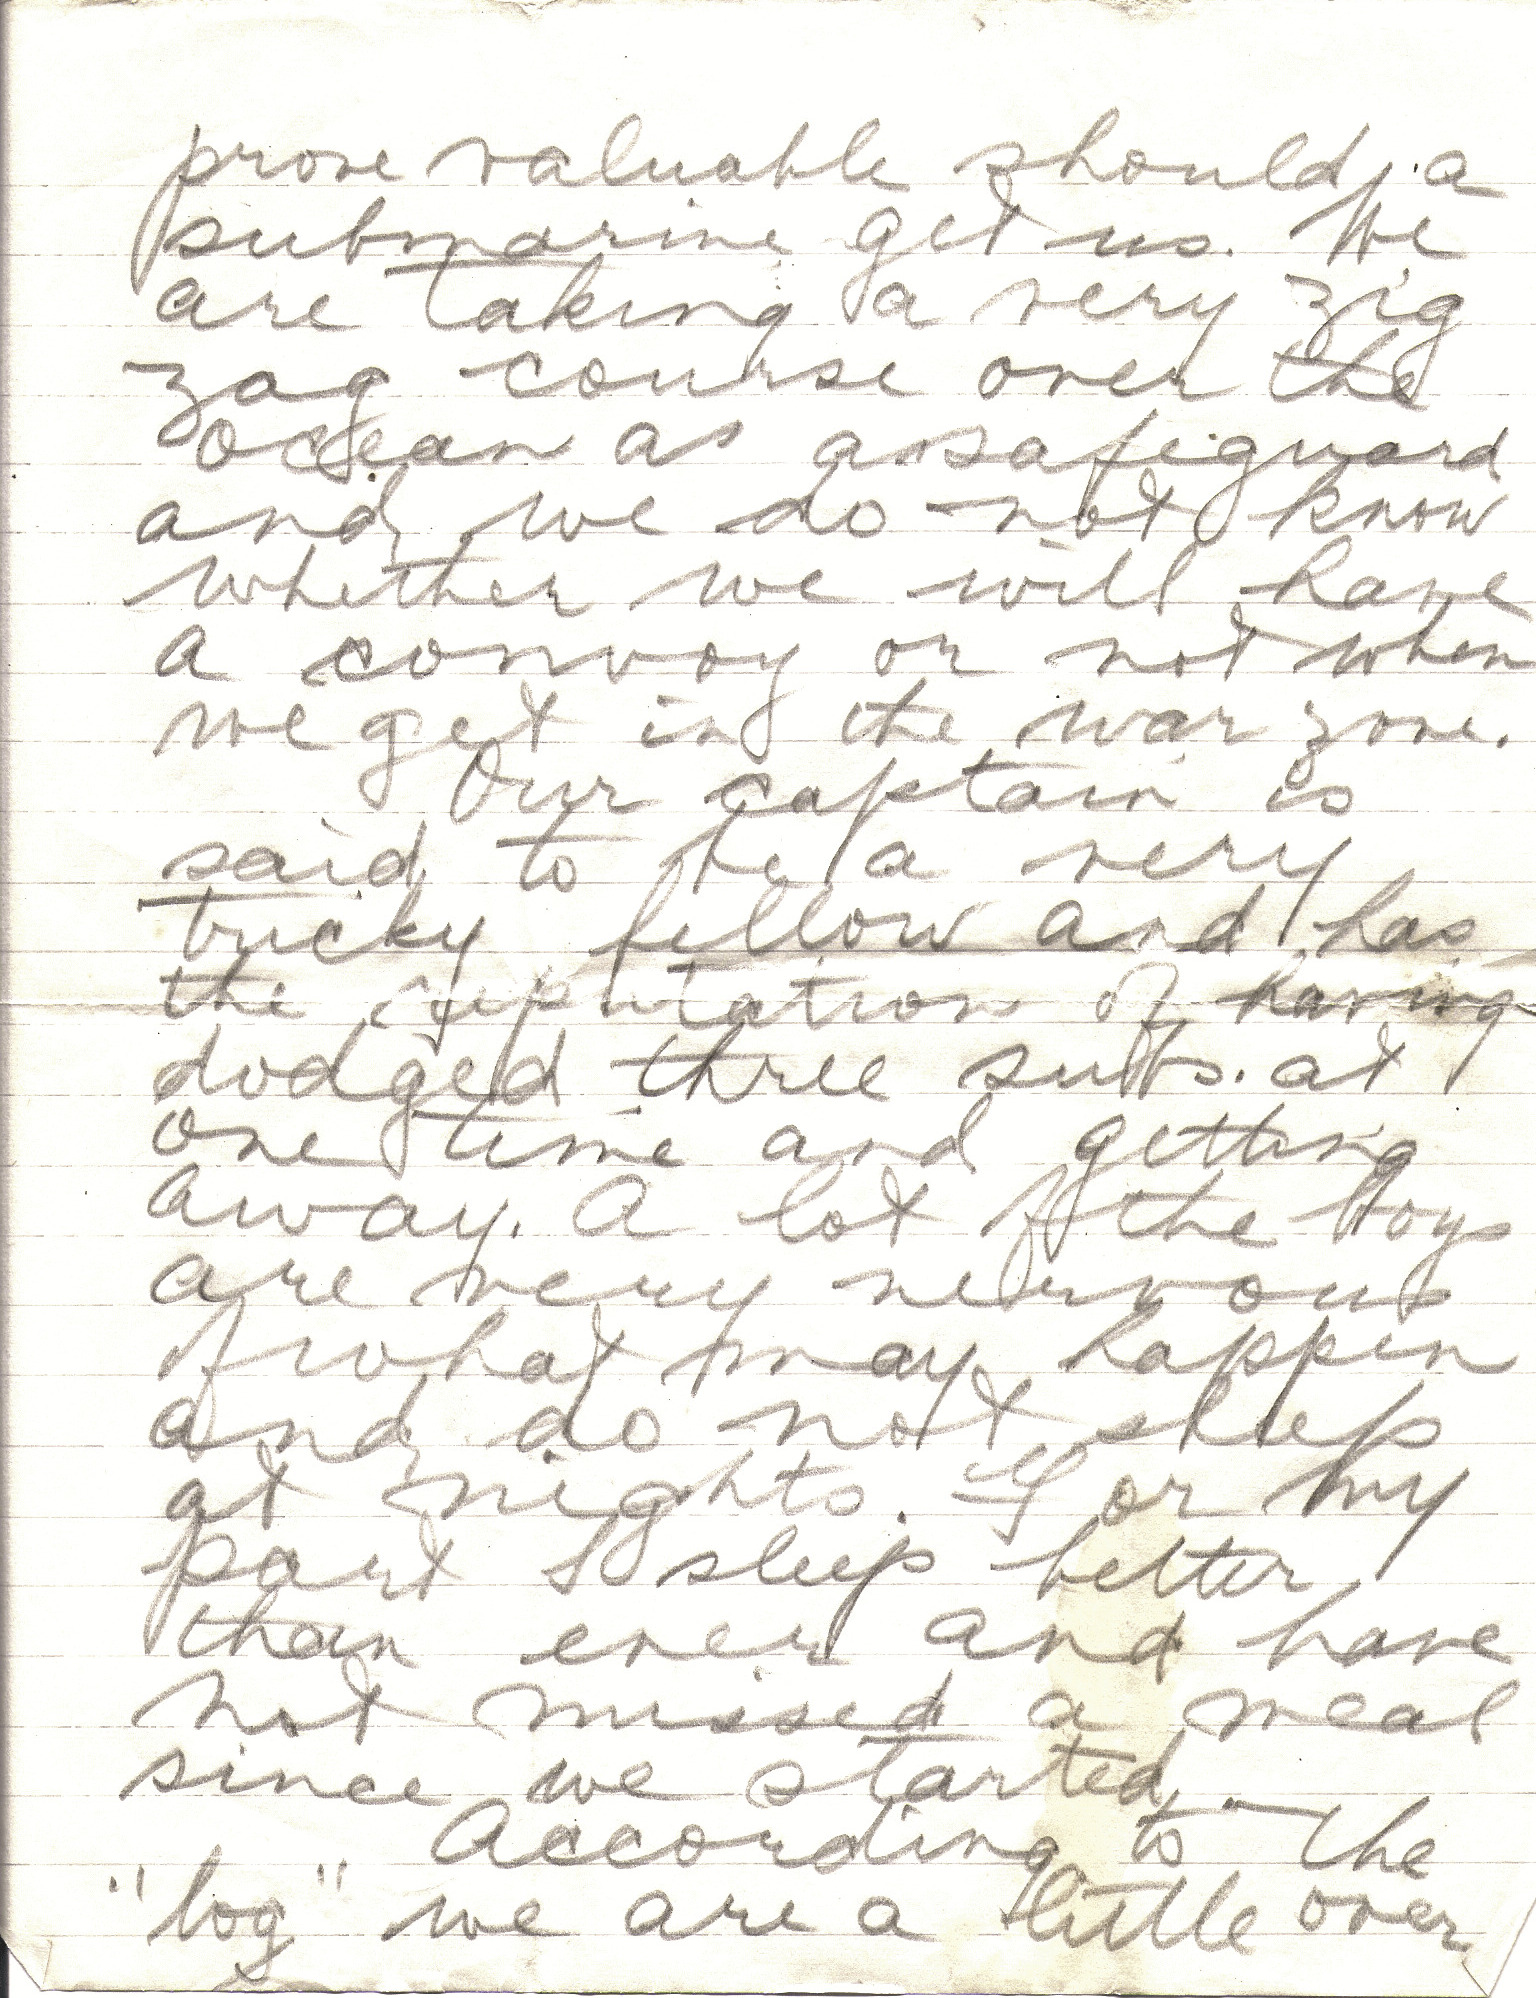 prove valuable should a
submarine get us. We
are taking a very zig
zag course over the
ocean as a safeguard
and we do not know
whether we will have
a convoy or not when
we get in the war zone.
Our captain is
said to be a very
tricky fellow and has
the reputation of having
dodged three subs. at
one time and getting
away. A lot of the boys
are very nervous
of what may happen
and do not sleep
at nights. For my
part I sleep better
than ever and have
not missed a meal
since we started.
According to the
"log" we are a little over